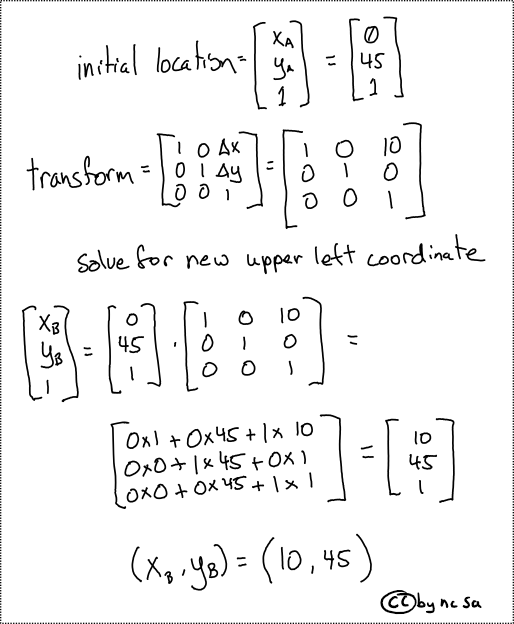 initial location = [x_A y_A 1] = [0 45 1]
transform = [1 0 Δx; 0 1 Δy; 0 0 1] = [1 0 10; 0 1 0; 0 0 1]
solve for new upper left coordinate
[x_B y_B 1] = [0 45 1] · [1 0 10; 0 1 0; 0 0 1] =
[0x1 + 0x45 + 1x10; 0x0 + 1x45 + 0x1; 0x0 + 0x45 + 1x1] = [10 45 1]
(x_B, y_B) = (10, 45)
cc by nc sa